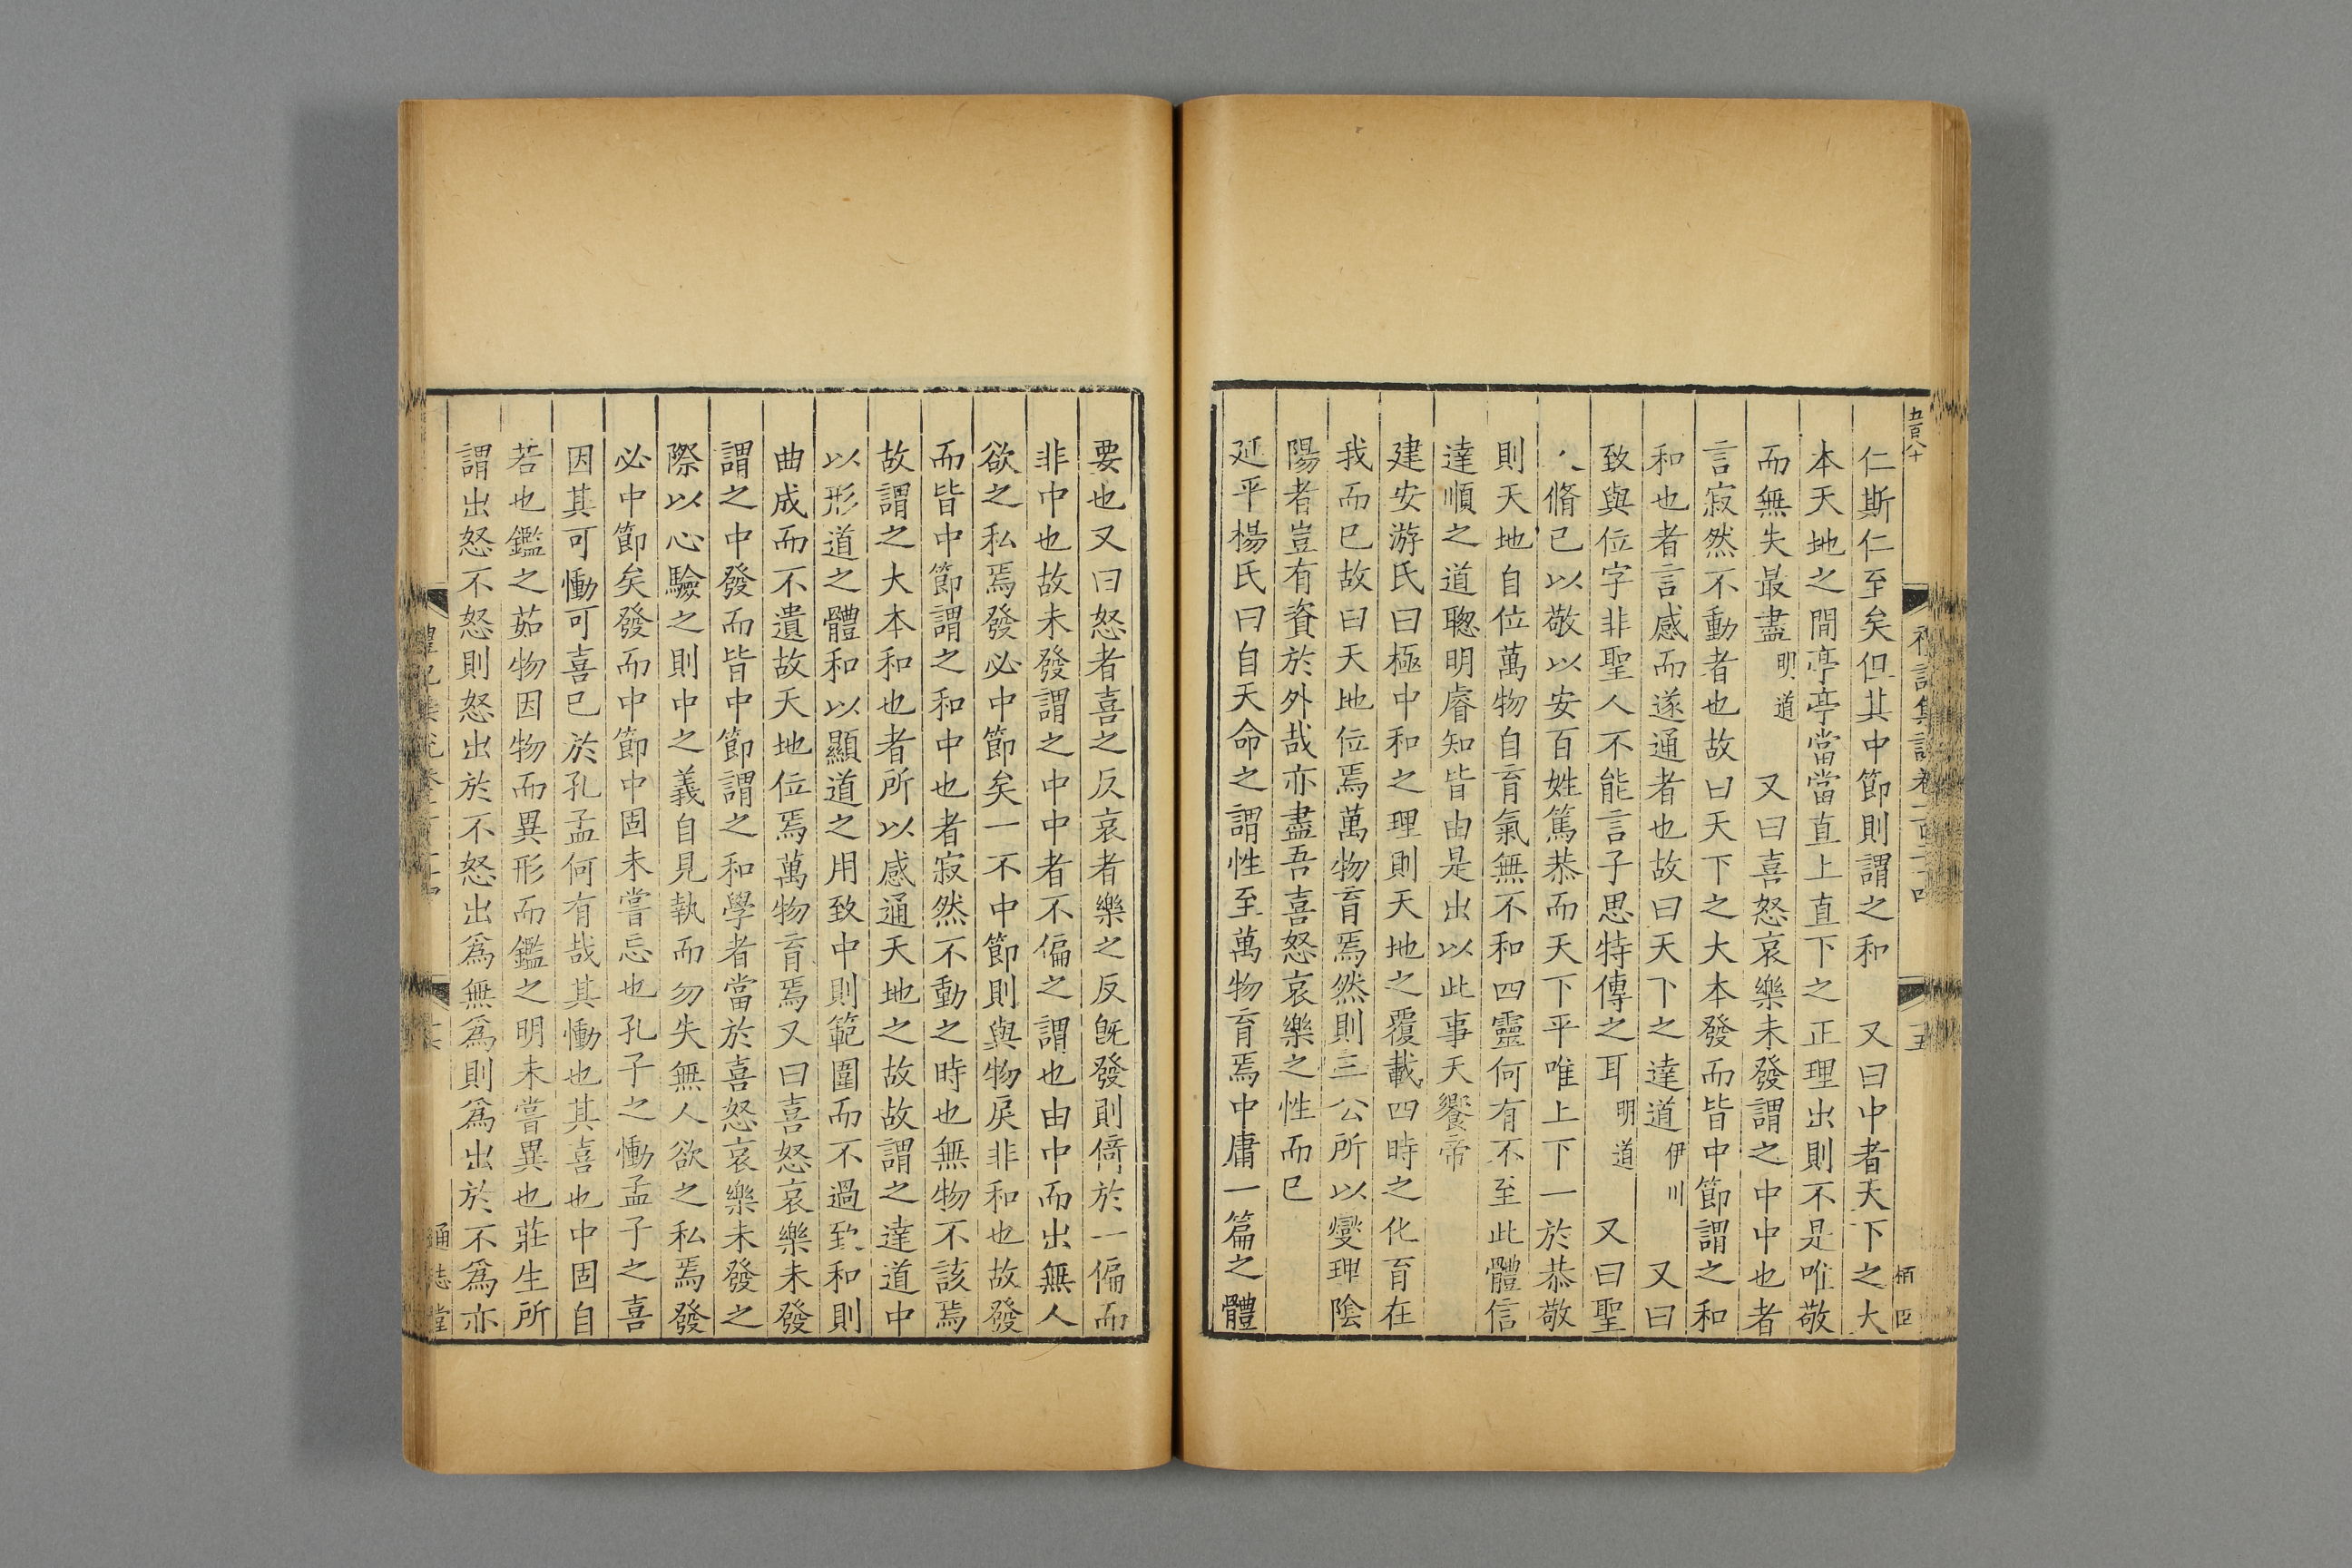 仁斯仁至矣但其中節則謂之和 又曰中者天下之大
本天地之間亭亭當當直上直下之正理出則不是唯敬
而無失最盡明道 又曰喜怒哀樂未發謂之中中也者
言寂然不動者也故曰天下之大本發而皆中節謂之和
和也者言感而遂通者也故曰天下之達道伊川 又曰
致與位字非聖人不能言子思特傳之耳明道 又曰聖
人脩己以敬以安百姓篤恭而天下平唯上下一於恭敬
則天地自位萬物自育氣無不和四靈何有不至此體信
達順之道聰明睿知皆由是出以此事天饗帝
建安游氏曰極中和之理則天地之覆載四時之化育在
我而已故曰天地位焉萬物育焉然則三公所以燮理陰
陽者豈有資於外哉亦盡吾喜怒哀樂之性而已
延平楊氏曰自天命之謂性至萬物育焉中庸一篇之體
要也又曰怒者喜之反哀者樂之反旣發則倚於一偏而
非中也故未發謂之中中者不偏之謂也由中而出無人
欲之私焉發必中節矣一不中節則與物戾非和也故發
而皆中節謂之和中也者寂然不動之時也無物不該焉
故謂之大本和也者所以感通天地之故故謂之達道中
以形道之體和以顯道之用致中則範圍而不過致和則
曲成而不遺故天地位焉萬物育焉又曰喜怒哀樂未發
謂之中發而皆中節謂之和學者當於喜怒哀樂未發之
際以心驗之則中之義自見執而勿失無人欲之私焉發
必中節矣發而中節中固未嘗忘也孔子之慟孟子之喜
因其可慟可喜已於孔孟何有哉其慟也其喜也中固自
若也鑑之茹物因物而異形而鑑之明未嘗異也莊生所
謂出怒不怒則怒出於不怒出爲無爲則爲出於不爲亦
五百八十
通志堂